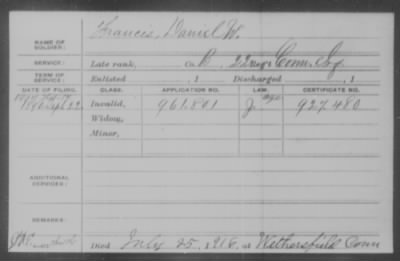 Francis, Daniel W.
NAME OF SOLDIER:
SERVICE: Late rank, Co. 22 Conn. Inf.
TERM OF SERVICE: Enlisted , 1 Discharged , 1
DATE OF FILING. CLASS. APPLICATION NO. LAW. CERTIFICATE NO.
1890 Sept 22 Invalid, 961,801 J 927480
Widow,
Minor,
ADDITIONAL SERVICES:
REMARKS:
Died July 25, 1916, at Wethersfield Conn